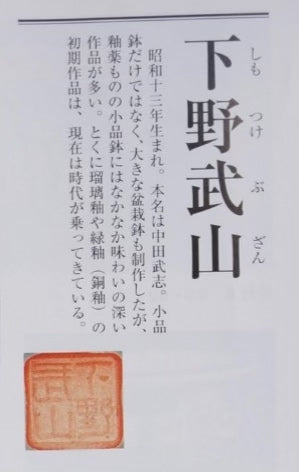 下野武山
しもつけぶざん
昭和十三年生まれ。本名は中田武志。小品
鉢だけではなく、大きな盆栽鉢も制作したが、
釉薬ものの小品鉢にはなかなか味わいの深い
作品が多い。とくに瑠璃釉や緑釉（銅釉）の
初期作品は、現在は時代が乗ってきている。
下野
武山